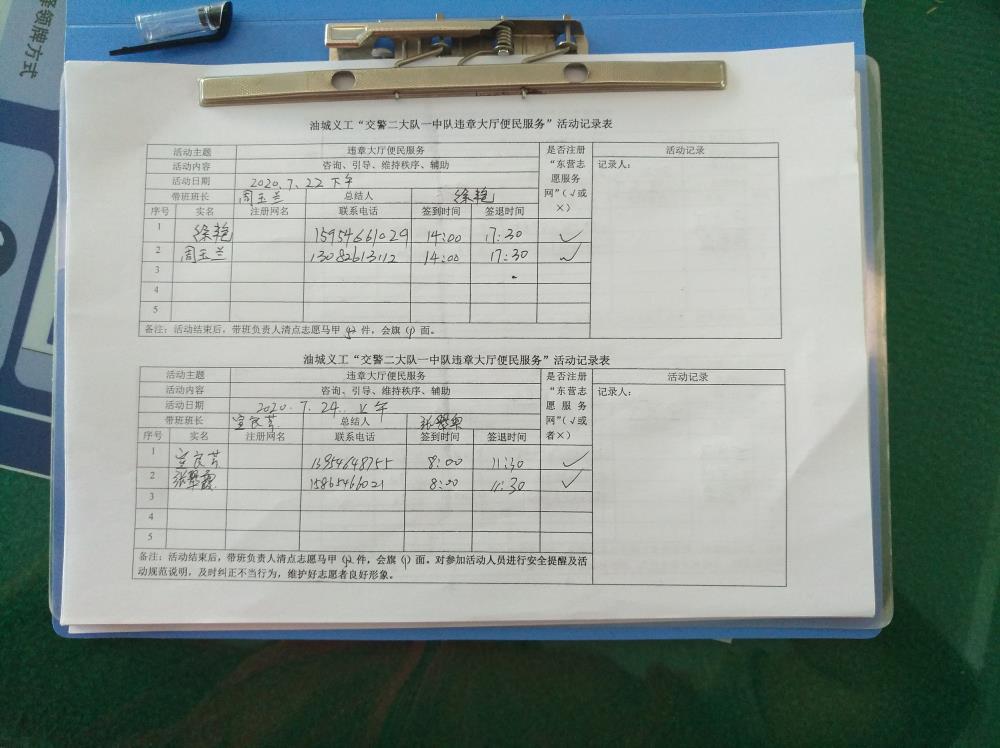 领牌方式
油城义工“交警二大队一中队违章大厅便民服务”活动记录表
活动主题 违章大厅便民服务 是否注册“东营志愿服务网”（√或×） 活动记录
活动内容 咨询、引导、维持秩序、辅助 记录人：
活动日期 2020.7.22 下午
带班班长 周玉兰 总结人 徐艳
序号 实名 注册网名 联系电话 签到时间 签退时间
1 徐艳 15954661029 14:00 17:30 √
2 周玉兰 13082613112 14:00 17:30 √
3
4
5
备注：活动结束后，带班负责人清点志愿马甲（2）件，会旗（1）面。
油城义工“交警二大队一中队违章大厅便民服务”活动记录表
活动主题 违章大厅便民服务 是否注册“东营志愿服务网”（√或者×） 活动记录
活动内容 咨询、引导、维持秩序、辅助 记录人：
活动日期 2020.7.24. 上午
带班班长 总结人
序号 实名 注册网名 联系电话 签到时间 签退时间
1 13954648755 8:00 11:30 √
2 15865466021 8:00 11:30 √
3
4
5
备注：活动结束后，带班负责人清点志愿马甲（2）件，会旗（1）面。对参加活动人员进行安全提醒及活
动规范说明，及时纠正不当行为，维护好志愿者良好形象。